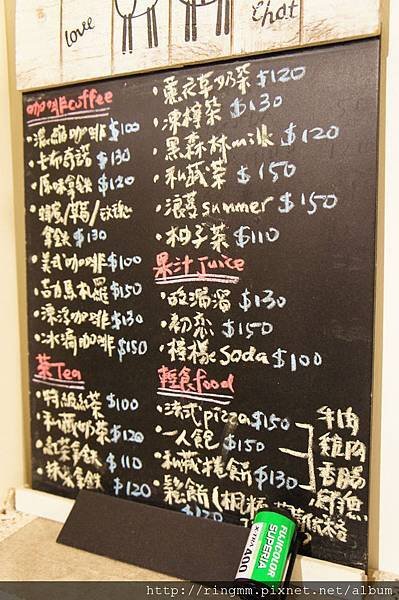 love
Chat
咖啡coffee
濃縮咖啡 $100
卡布奇諾 $130
原味拿鐵 $120
拿鐵 $130
美式咖啡 $100
吉力馬札羅 $150
漂浮咖啡 $130
冰滴咖啡 $150
茶Tea
特級紅茶 $100
私藏奶茶 $120
紅茶拿鐵 $110
抹茶拿鐵 $120
薰衣草奶茶 $120
凍檸茶 $130
黑森林milk $120
私藏茶 $150
浪漫summer $150
柚子茶 $110
果汁Juice
酸溜溜 $130
初戀 $150
檸檬Soda $100
輕食food
法式pizza $150
一人包 $150
私藏捲餅 $130
鬆餅(楓糖
$120
牛肉
雞肉
香腸
FUJICOLOR
SUPERIA
X-TRA400
http://ringmm.pixnet.net/album